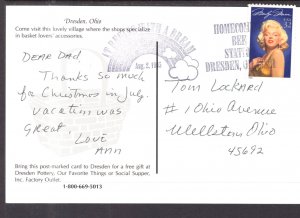 Dresden, Ohio
Come visit this lovely village where the shops specialize
in basket lovers' accessories.
DEAR DAD
Thanks so much
for Christmas in July.
Vacation was
Great!
Love
Ann
Bring this post-marked card to Dresden for a free gift at
Dresden Pottery, Our Favorite Things or Social Supper,
Inc. Factory Outlet.
1-800-669-5013
WITH A DREAM
Aug. 2, 1995
HOMECOMING
STATION
DRESDEN,
32
Tom Lockard
#1 Ohio Avenue
Wellston, Ohio
45692